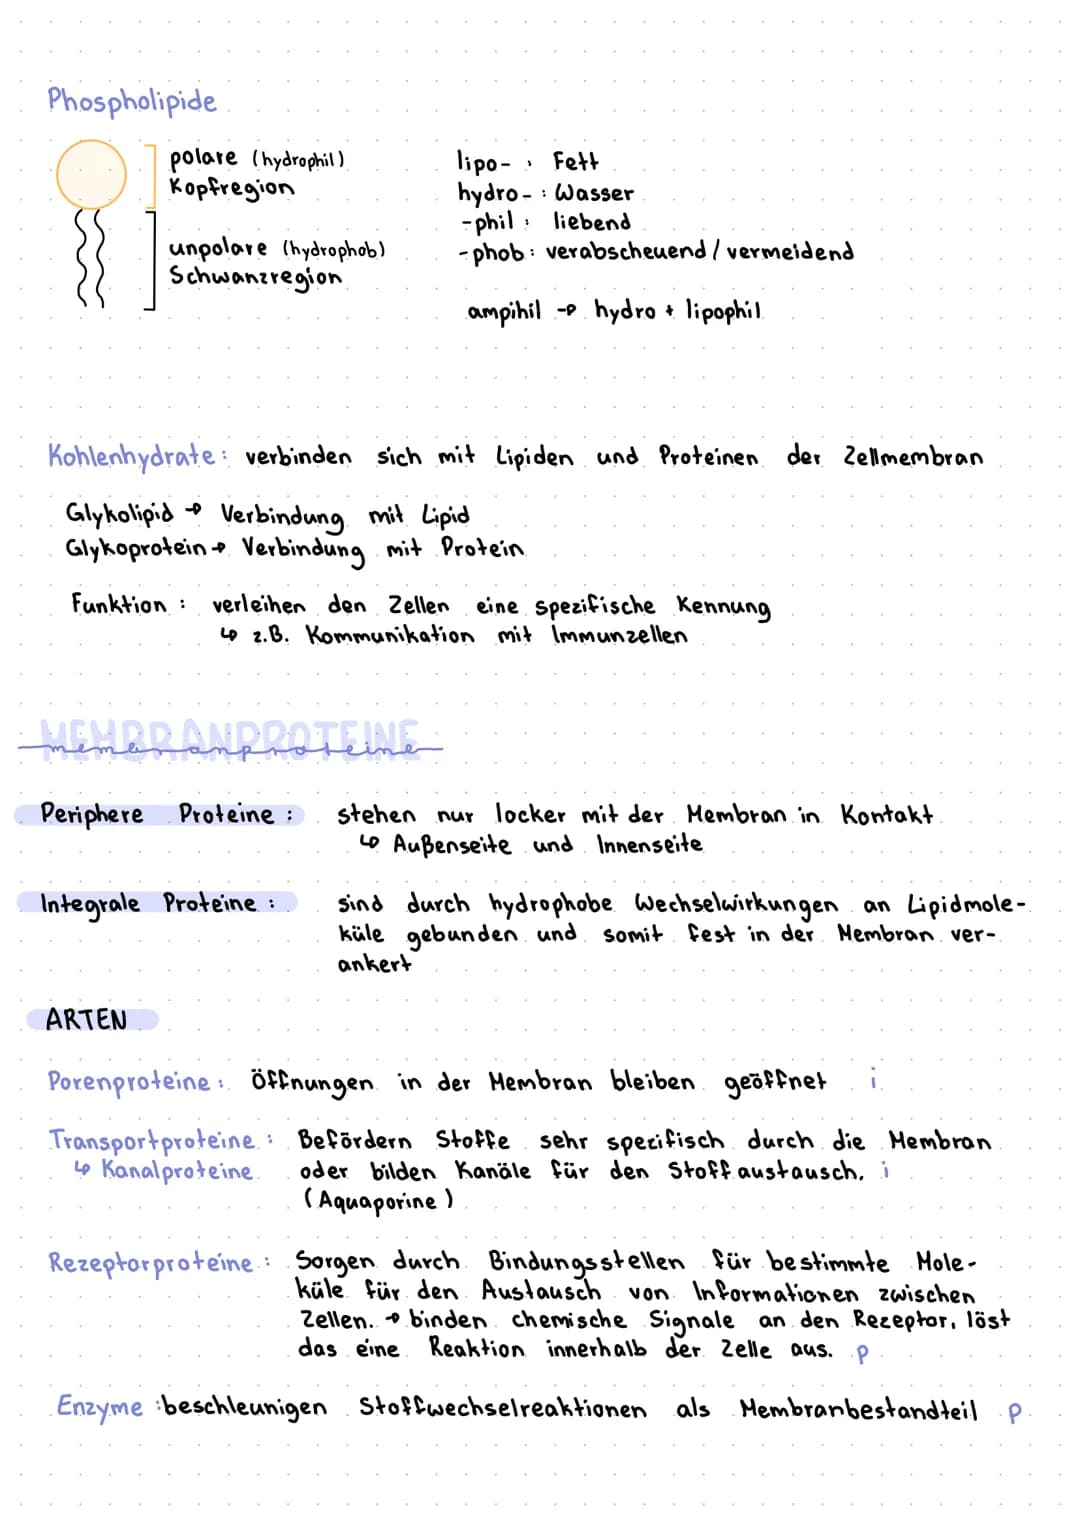 Phospholipide
polare (hydrophil)
Kopfregion
unpolare (hydrophob)
Schwanzregion
lipo- : Fett
hydro- : Wasser
-phil : liebend
-phob : verabscheuend / vermeidend
ampihil → hydro + lipophil
Kohlenhydrate : verbinden sich mit Lipiden und Proteinen der Zellmembran
Glykolipid → Verbindung mit Lipid
Glykoprotein → Verbindung mit Protein
Funktion : verleihen den Zellen eine spezifische Kennung
↳ z.B. Kommunikation mit Immunzellen
MEMBRANPROTEINE
membranproteine
Periphere Proteine : stehen nur locker mit der Membran in Kontakt
↳ Außenseite und Innenseite
Integrale Proteine : sind durch hydrophobe Wechselwirkungen an Lipidmole-
küle gebunden und somit fest in der Membran ver-
ankert
ARTEN
Porenproteine : Öffnungen in der Membran bleiben geöffnet i
Transportproteine : Befördern Stoffe sehr spezifisch durch die Membran
↳ Kanalproteine oder bilden Kanäle für den Stoffaustausch. i
(Aquaporine)
Rezeptorproteine : Sorgen durch Bindungsstellen für bestimmte Mole-
küle für den Austausch von Informationen zwischen
Zellen. → binden chemische Signale an den Rezeptor, löst
das eine Reaktion innerhalb der Zelle aus. p
Enzyme : beschleunigen Stoffwechselreaktionen als Membranbestandteil p